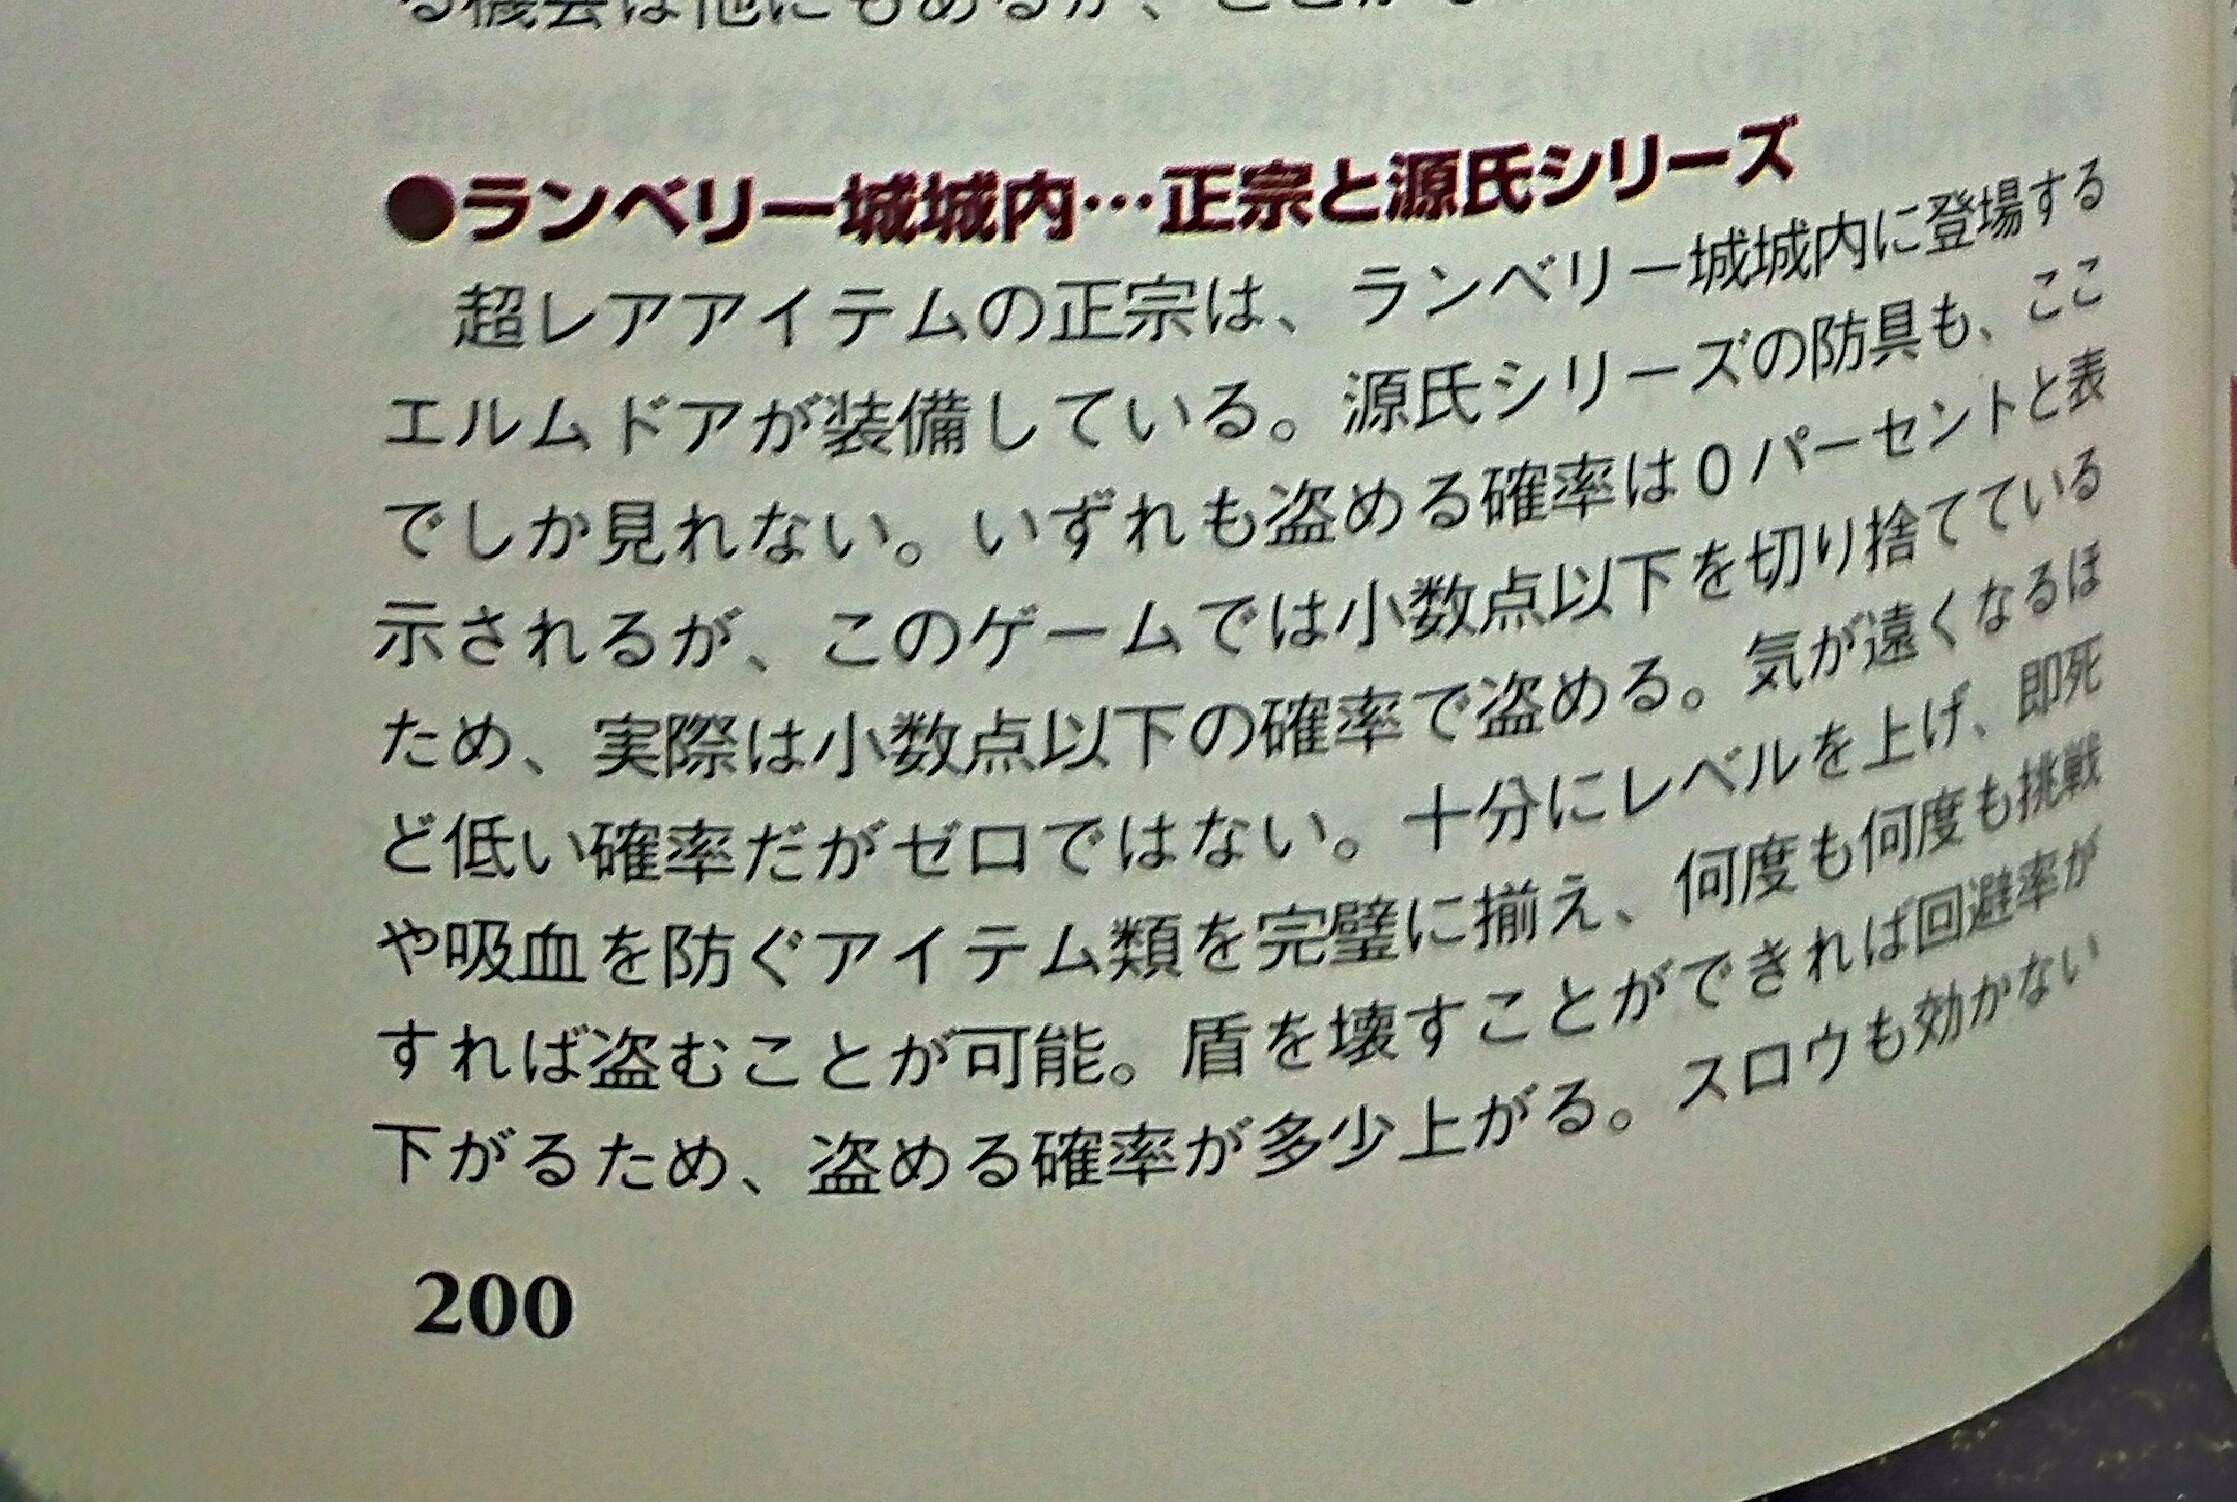 る機会は他にもあるが、ここが
●ランベリー城城内…正宗と源氏シリーズ
超レアアイテムの正宗は、ランベリー城城内に登場する
エルムドアが装備している。源氏シリーズの防具も、ここ
でしか見れない。いずれも盗める確率は0パーセントと表
示されるが、このゲームでは小数点以下を切り捨てている
ため、実際は小数点以下の確率で盗める。気が遠くなるほ
ど低い確率だがゼロではない。十分にレベルを上げ、即死
や吸血を防ぐアイテム類を完璧に揃え、何度も何度も挑戦
すれば盗むことが可能。盾を壊すことができれば回避率が
下がるため、盗める確率が多少上がる。スロウも効かない
200